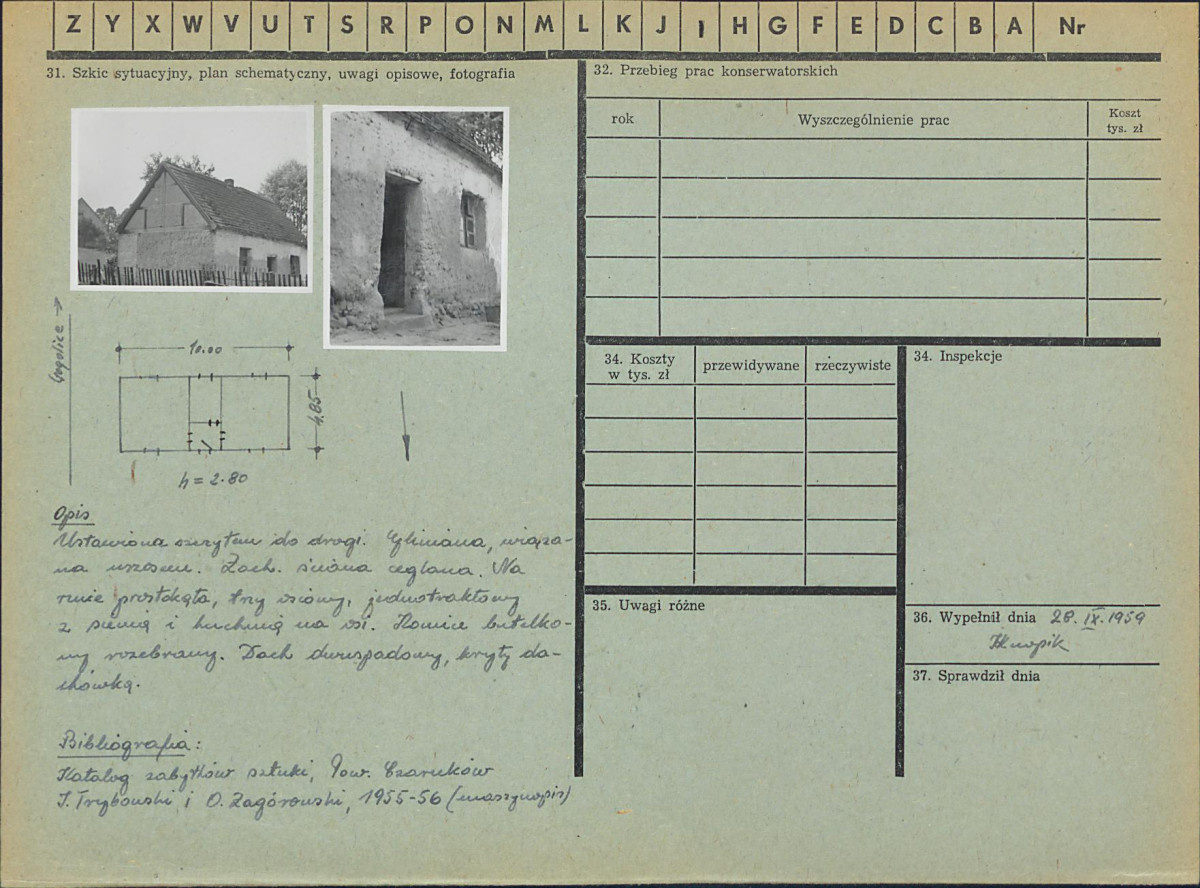 Z Y X W V U T S R P O N M L K J I H G F E D C B A Nr
31. Szkic sytuacyjny, plan schematyczny, uwagi opisowe, fotografia
10.00
4.85
h = 2.80
Opis
Ustawiona szczytem do drogi. Gliniana, wiąza-
na wrzosem. Zach. ściana ceglana. Na
rzucie prostokąta, trzy osiowy, jednotraktowy
z sienią i kuchnią na osi. Komin butelko-
wy rozebrany. Dach dwuspadowy, kryty da-
chówką.
Bibliografia:
Katalog zabytków sztuki, Pow. Czarnków
J. Trybowski i O. Zagórowski, 1955-56 (maszynopis)
32. Przebieg prac konserwatorskich
rok
Wyszczególnienie prac
Koszt
tys. zł
34. Koszty
w tys. zł
przewidywane
rzeczywiste
34. Inspekcje
35. Uwagi różne
36. Wypełnił dnia 28. IX. 1959
37. Sprawdził dnia